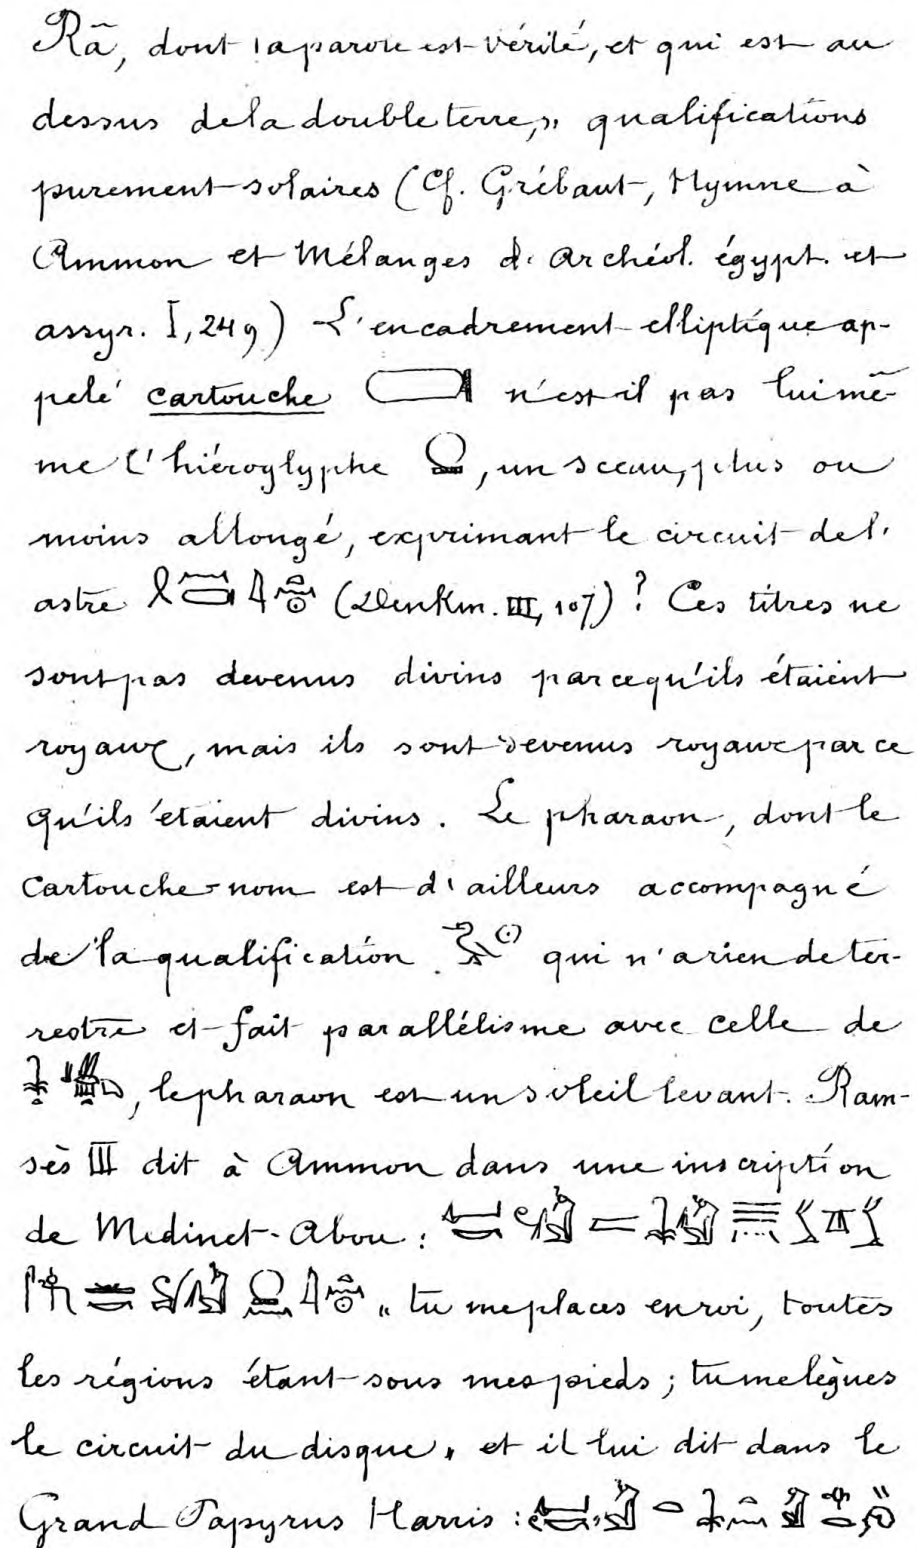 Rā, dont la parole est vérité, et qui est au
dessus de la double terre,» qualifications
purement solaires (Cf. Grébaut, Hymne à
Ammon et Mélanges d'Archéol. égypt. et
assyr. I, 249) L'encadrement elliptique ap-
pelé cartouche n'est-il pas lui mê-
me l'hiéroglyphe , un sceau, plus ou
moins allongé, exprimant le circuit de l'
astre (Denkm. III, 107)? Ces titres ne
sont pas devenus divins parcequ'ils étaient
royaux, mais ils sont devenus royaux par ce
qu'ils étaient divins. Le pharaon, dont le
cartouche-nom est d'ailleurs accompagné
de la qualification qui n'a rien de ter-
restre et fait parallélisme avec celle de
, le pharaon est un soleil levant. Ram-
sès III dit à Ammon dans une inscription
de Medinet-Abou :
« tu me places en roi, toutes
les régions étant sous mes pieds ; tu me lègues
le circuit du disque » et il lui dit dans le
Grand Papyrus Harris :